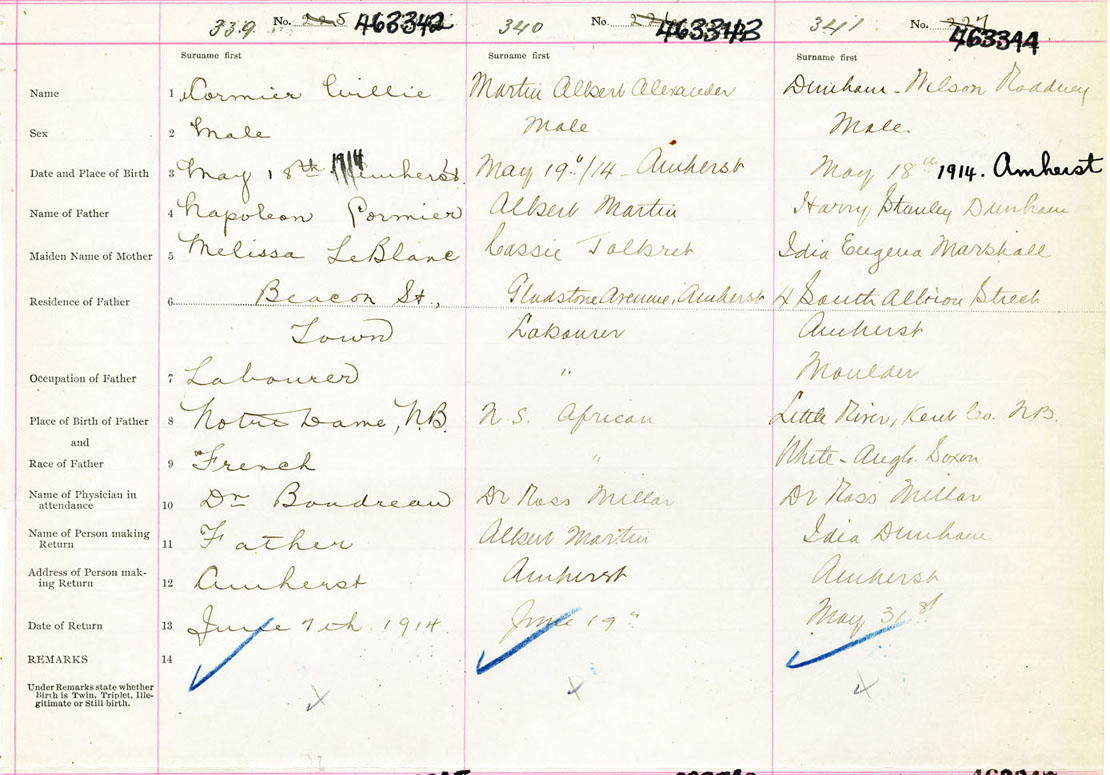 339 No. 225 463342 340 No. 226 463343 341 No. 227 463344
Suruame first Surname first Surname first
Name 1 Cormier Willie Martin Albert Alexander Dunham - Wilson Roddney
Sex 2 Male Male Male
Date and Place of Birth 3 May 18th 1914 Amherst. May 19"/14 - Amherst May 18th 1914. Amherst
Name of Father 4 Napoleon Cormier Albert Martin Harry Stanley Dunham
Maiden Name of Mother 5 Melissa LeBlanc Cassie Tolbret Idia Eugena Marshall
Residence of Father 6 Beacon St., Gladstone Avenue, Amherst 4 South Albion Street
Town Labourer Amherst
Occupation of Father 7 Labourer " Moulder
Place of Birth of Father 8 Notre Dame, N.B. N.S. African Little River, Kent Co. N.B.
and
Race of Father 9 French " White - Anglo Soxon
Name of Physician in
attendance 10 Dr Boudreau Dr Ross Millar Dr Ross Millar
Name of Person making
Return 11 Father Albert Martin Idia Dunham
Address of Person mak-
ing Return 12 Amherst Amherst Amherst
Date of Return 13 June 7th. 1914. June 19" May 31st
REMARKS 14
Under Remarks state whether
Birth is Twin, Triplet, Ille-
gitimate or Still-birth.